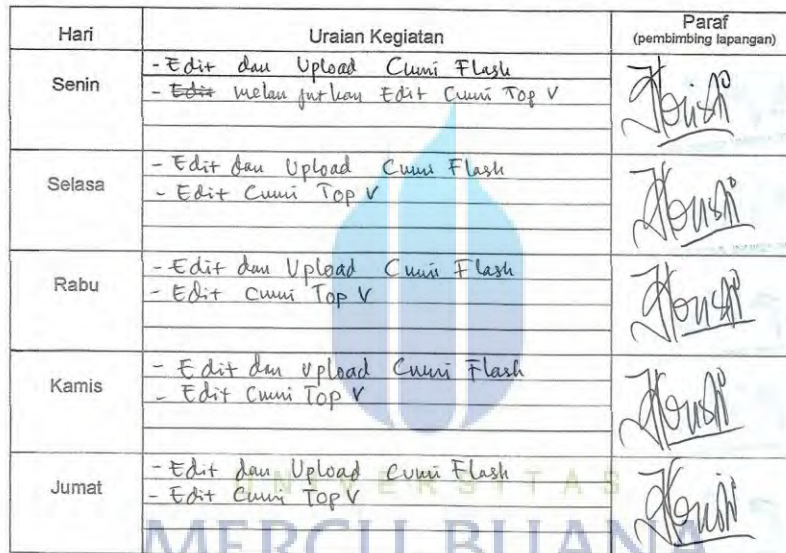 Hari Uraian Kegiatan Paraf
(pembimbing lapangan)
Senin
- Edit dan Upload Cumi Flash
- Edit melanjutkan Edit Cumi Top V
Selasa
- Edit dan Upload Cumi Flash
- Edit Cumi Top V
Rabu
- Edit dan Upload Cumi Flash
- Edit Cumi Top V
Kamis
- Edit dan Upload Cumi Flash
- Edit Cumi Top V
Jumat
- Edit dan Upload Cumi Flash
- Edit Cumi Top V
UNIVERSITAS
MERCU BUANA